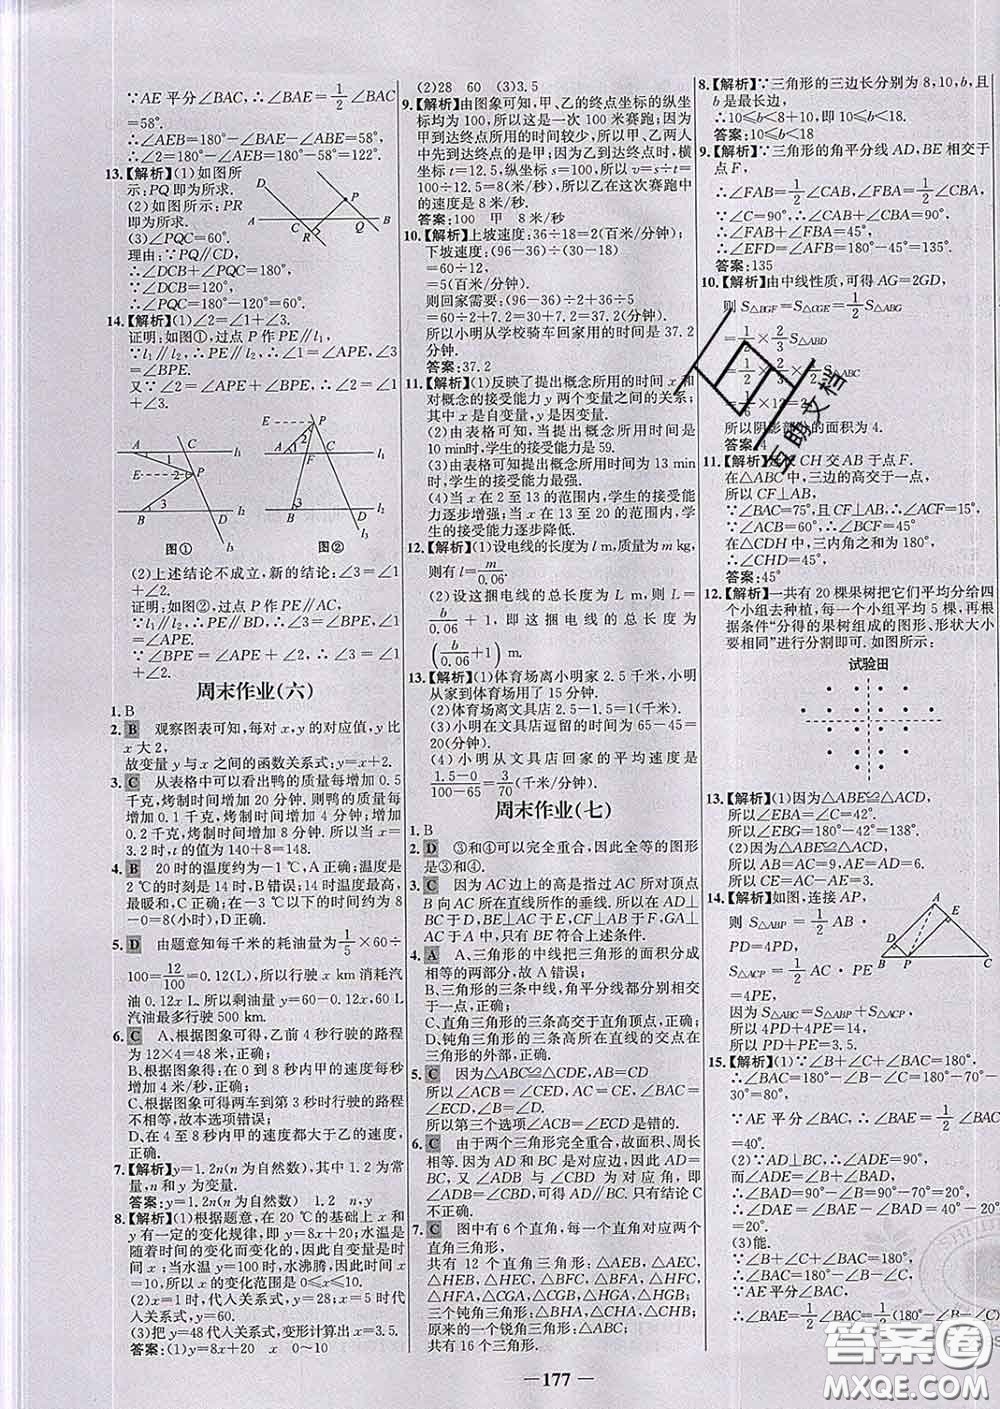 ∵AE 平分∠BAC,∴∠BAE=1/2∠BAC
=58°.
∴∠AEB=180°-∠BAE-∠ABE=58°.
∴∠2=180°-∠AEB=180°-58°=122°.
13.【解析】(1)如图所
示:PQ 即为所求.
(2)如图所示:PR
即为所求.
(3)∠PQC=60°.
理由:∵PQ∥CD,
∴∠DCB+∠PQC=180°,
∵∠DCB=120°,
∴∠PQC=180°-120°=60°.
14.【解析】(1)∠2=∠1+∠3.
证明:如图①,过点 P 作 PE∥l₁,
∵l₁∥l₂,∴PE∥l₂,∴∠APE=∠1,∠BPE=∠3.
又∵∠2=∠APE+∠BPE,
∴∠2=∠1+∠3.
图① 图②
(2)上述结论不成立,新的结论:∠3=∠1
+∠2.
证明:如图②,过点 P 作 PE∥AC,
∵l₁∥l₂,∴PE∥BD,∴∠APE=∠1,∠BPE=∠3.
∵∠BPE=∠APE+∠2,
∴∠3=∠1+∠2.
周末作业(六)
1.B
2. B 观察图表可知,每对 x,y 的对应值,y 比
x 大2,
故变量 y 与 x 之间的函数关系式:y=x+2.
3. C 从表格中可以看出鸭的质量每增加 0.5
千克,烤制时间增加 20 分钟. 则鸭的质量每增加
0.2 千克,烤制时间增加 8 分钟. 所以,当 x=
3.2 时,t 的值为 140+8=148.
4. B 20 时的温度约为-1 ℃,A 正确;温度是
2 ℃的时刻是 14 时,B 错误;14 时温度最高,
最暖和,C 正确;在-3 ℃以下的时间约为
8-0=8(小时),D 正确.
5. D 由题意知每千米的耗油量为1/5×60÷
100=12/100=0.12(L). 所以行驶 x km 消耗汽
油 0.12x L. 所以剩油量 y=60-0.12x,60 L
汽油最多行驶 500 km.
6. C A、根据图象可得,乙前 4 秒行驶的路程
为 12×4=48 米,正确;
B、根据图象得:在 0 到 8 秒内甲的速度每秒
增加 4 米,正确;
C、根据图象可得两车到第 3 秒时行驶的路程
不相等,故本选项错误;
D、在 4 至 8 秒内甲的速度都大于乙的速度,
正确.
7.【解析】y=1.2n(n 为自然数),其中 1.2 为常
量,n 和 y 为变量.
答案:y=1.2n(n 为自然数) 1.2 n,y
8.【解析】(1)根据题意,在 20 ℃的基础上 x 和
y 有一定的变化规律,即 y=8x+20;水温是
随着时间的变化而变化的,因此自变量是时间
x;当水温 y=100 ℃时,水沸腾,因此时间 x
=10,所以 x 的变化范围是 0≤x≤10.
(2)x=1 时,代入关系式,y=28;x=5 时代
入关系式,y=60.
(3)把 y=48 代入关系式,变形计算得 x=3.5.
答案:(1)y=8x+20 x 0~10
(2)28 60 (3)3.5
9.【解析】由图象可知,甲、乙的终点坐标的纵坐
标均为 100,所以这是一次 100 米赛跑;因为
甲到达终点所用的时间较少,所以甲、乙两人
中先到达终点的是甲;因为乙到达终点时,横
坐标 t=12.5,纵坐标 s=100,所以 v=s÷t=
100÷12.5=8(米/秒),所以乙在这次赛跑中
的速度是 8 米/秒.
答案:100 甲 8 米/秒
10.【解析】上坡速度:36÷18=2(百米/分钟);
下坡速度:(96-36)÷(30-18)
=60÷12
=5(百米/分钟).
则回家需要:(96-36)÷2+36÷5
=60÷2+36÷5=37.2(分钟).
所以小明从学校骑车回家用的时间是 37.2
分钟.
答案:37.2
11.【解析】(1)反映了提出概念所用的时间 x 和
对概念的接受能力 y 两个变量之间的关系;
其中 x 是自变量,y 是因变量.
(2)由表格可知,当提出概念所用的时间为
10 min时,学生的接受能力是 59.
(3)由表格可知,当提出概念所用时间为 13 min
时,学生的接受能力最强.
(4)当 x 在 2 至 13 的范围内,学生的接受能
力逐步增强;当 x 在 13 至 20 的范围内,学生
的接受能力逐步降低.
12.【解析】(1)设电线的长度为 l m,质量为 m kg,
则有 l=m/0.06.
(2)设这捆电线的总长度为 L m,则 L=
b/0.06+1,即这捆电线的总长度为
(b/0.06+1) m.
13.【解析】(1)体育场离小明家 2.5 千米,小明
从家到体育场用了 15 分钟.
(2)体育场离文具店 2.5-1.5=1(千米).
(3)小明在文具店逗留的时间为 65-45=
20(分钟).
(4)小明从文具店回家的平均速度是
(1.5-0)/(100-65)=3/70(千米/分钟).
周末作业(七)
1.B
2. D ③和④可以完全重合,因此全等的图形
是③和④.
3. C 因为 AC 边上的高是指过 AC 所对顶点
B 向 AC 所在直线所作的垂线. 所以因为 AD
⊥BC 于 D,BE⊥AC 于 E,CF⊥AB 于 F,AG
⊥AC 于 A 中,只有 BE 符合上述条件.
4. A A、三角形的中线把三角形的面积分成
相等的两部分,故 A 错误;
B、三角形的三条中线,角平分线都相交
于一点,正确;
C、直角三角形的三条高交于三角形的直角顶
点处,正确;
D、钝角三角形的三条高所在直线的交点在
三角形的外部,正确.
5. C 因为△ABC≌△CDE,AB=CD
所以∠ACB=∠CED,AC=CE,∠BAC=
∠ECD,∠B=∠D
所以第三个选项∠ACB=∠ECD 是错的.
6. C 由于两个三角形完全重合,故面积、周长
相等. C、因为 AD 和 BC 是对应边,因此
AD=BC、∠ADB=∠CBD、∠ABD=∠CDB,即
∠ADB=∠CBD,可知 AD∥BC. 故结论 C
不正确.
7. C 图中有 6 个直角,每一个直角对应两个
直角三角形,
共有 12 个直角三角形:△AEB,△AEC,
△HEB,△HEC,△BFC,△BFA,△HFC,
△HFA,△CGB,△CGA,△HGB,△HGA;
三个钝角三角形:△BHA,△CHA,△CHB;
原来的一个锐角三角形:△ABC.
共有 16 个三角形.
8.【解析】∵三角形的三边长分别为 8,10,b,且
b 是最长边,
∴10≤b<8+10,即 10≤b<18.
答案:10≤b<18
9.【解析】∵三角形的角平分线 AD,BE 相交于
点 F,
∴∠FAB=1/2∠CAB,∠FBA=1/2∠CBA,
∵∠C=90°,∴∠CAB+∠CBA=90°,
∴∠FAB+∠FBA=45°,
∴∠EFD=∠AFB=180°-45°=135°.
答案:135
10.【解析】由中线性质,可得 AG=2GD,
则 S△BGF=S△CGE=1/2 S△ABG
=1/2×2/3 S△ABD
=1/2×2/3×1/2 S△ABC
=1/6×12=2.
所以阴影部分的面积为 4.
答案:4
11.【解析】延长 CH 交 AB 于点 F.
在△ABC 中,三边的高交于一点,
所以 CF⊥AB,
∵∠BAC=75°,且 CF⊥AB,∴∠ACF=15°,
∵∠ACB=60°,∴∠BCF=45°
在△CDH 中,三内角之和为 180°,
∴∠CHD=45°.
答案:45°
12.【解析】一共有 20 棵果树把它们平均分给四
个小组去种植,每一个小组平均 5 棵,再根
据条件“分得的果树组成的图形、形状大小
要相同”进行分割即可. 如图所示:
试验田
13.【解析】(1)因为△ABE≌△ACD,
所以∠EBA=∠C=42°.
所以∠EBG=180°-42°=138°.
(2)因为△ABE≌△ACD,
所以 AB=AC=9,AE=AD=6,
所以 CE=AC-AE=3.
14.【解析】如图,连接 AP,
则 S△ABP=1/2 AB·
PD=4PD,
S△ACP=1/2 AC·PE
=4PE,
因为 S△ABC=S△ABP+S△ACP,
所以 4PD+4PE=14,
所以 PD+PE=3.5.
15.【解析】(1)∵∠B+∠C+∠BAC=180°,
∴∠BAC=180°-∠B-∠C=180°-70°-
30°=80°,
∵AE 平分∠BAC,∴∠BAE=1/2∠BAC
=40°.
(2)∵AD⊥BC,∴∠ADE=90°,
∴∠BAD+∠B=∠ADE=90°,
∴∠BAD=90°-∠B=90°-70°=20°,
∴∠DAE=∠BAE-∠BAD=40°-20°=20°.
(3)能.
∵∠B+∠C+∠BAC=180°,
∴∠BAC=180°-∠B-∠C,
∵AE 平分∠BAC,
∴∠BAE=1/2∠BAC=1/2(180°-∠B-∠C)
— 177 —
答案圈
MXQE.COM
互助文档